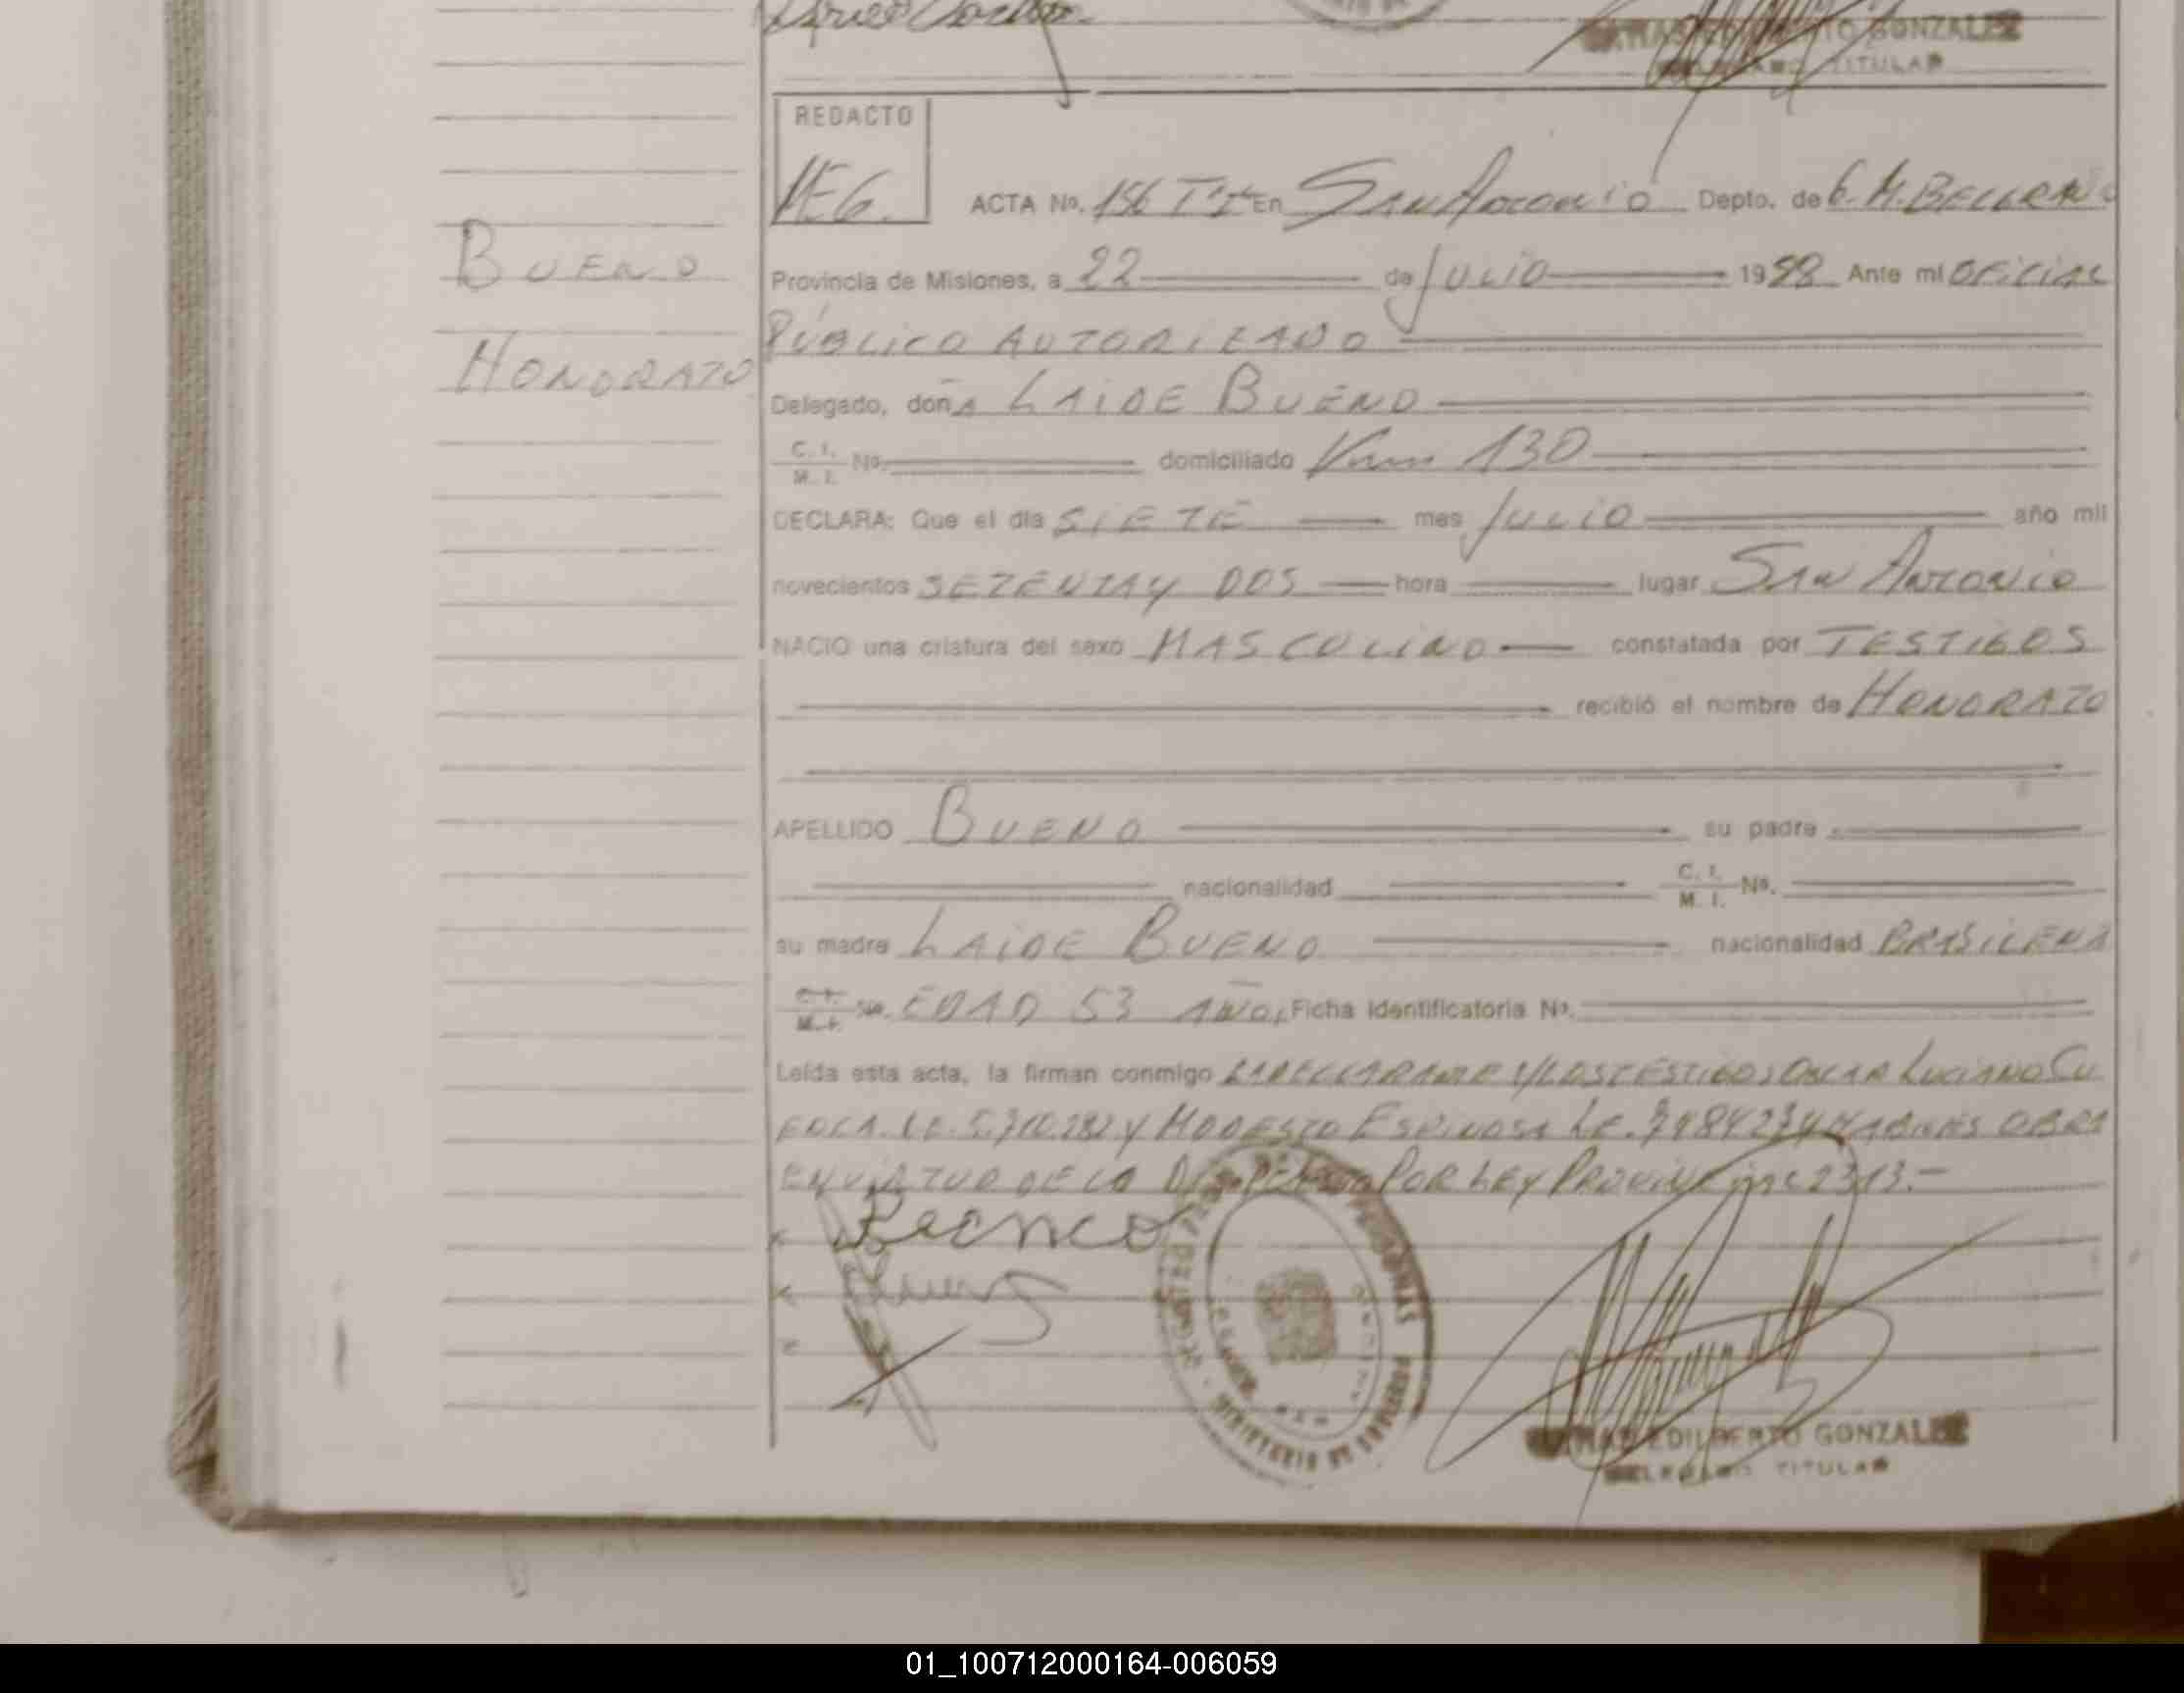 EDILBERTO GONZALEZ
TITULAR
REDACTO
MEG.
ACTA Nº. 156 Tº I En San Antonio Depto. de G. M. BELGRANO
BUENO
Provincia de Misiones, a 22 de Julio 1988 Ante mi OFICIAL
PÚBLICO AUTORIZADO
HONORATO
Delegado, doña LAIDE BUENO
C. I.
M. I. Nº. domiciliado Km 130
DECLARA: Que el día SIETE mes JULIO año mil
novecientos SETENTA Y DOS hora lugar SAN ANTONIO
NACIO una criatura del sexo MASCULINO constatada por TESTIGOS
recibió el nombre de HONORATO
APELLIDO BUENO su padre
nacionalidad C. I.
M. I. Nº.
su madre LAIDE BUENO nacionalidad BRASILEÑA
C. I.
M. I. Nº. EDAD 53 AÑOS Ficha Identificatoria Nº.
Leída esta acta, la firman conmigo LA DECLARANTE Y LOS TESTIGOS OSCAR LUCIANO CU
Y MODESTO ESPINOSA L.E.
EN VIRTUD DE LO DISPUESTO POR LEY PROVINCIAL 2313.-
DE LAS PERSONAS
MINISTERIO DE GOBIERNO
EDILBERTO GONZALEZ
DELEGADO TITULAR
01_100712000164-006059